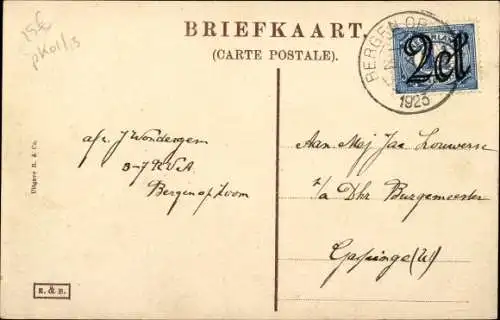 15€
pk01/3
BRIEFKAART.
(CARTE POSTALE).
BERGEN OP
1923
2ct
afz. J Wondergem
3-7 R.V.A
Bergen op Zoom
Aan Mej Jaa Louwerse
p/a Dhr Burgemeester
Gapinge (W)
Uitgave R. & Co.
E. & B.